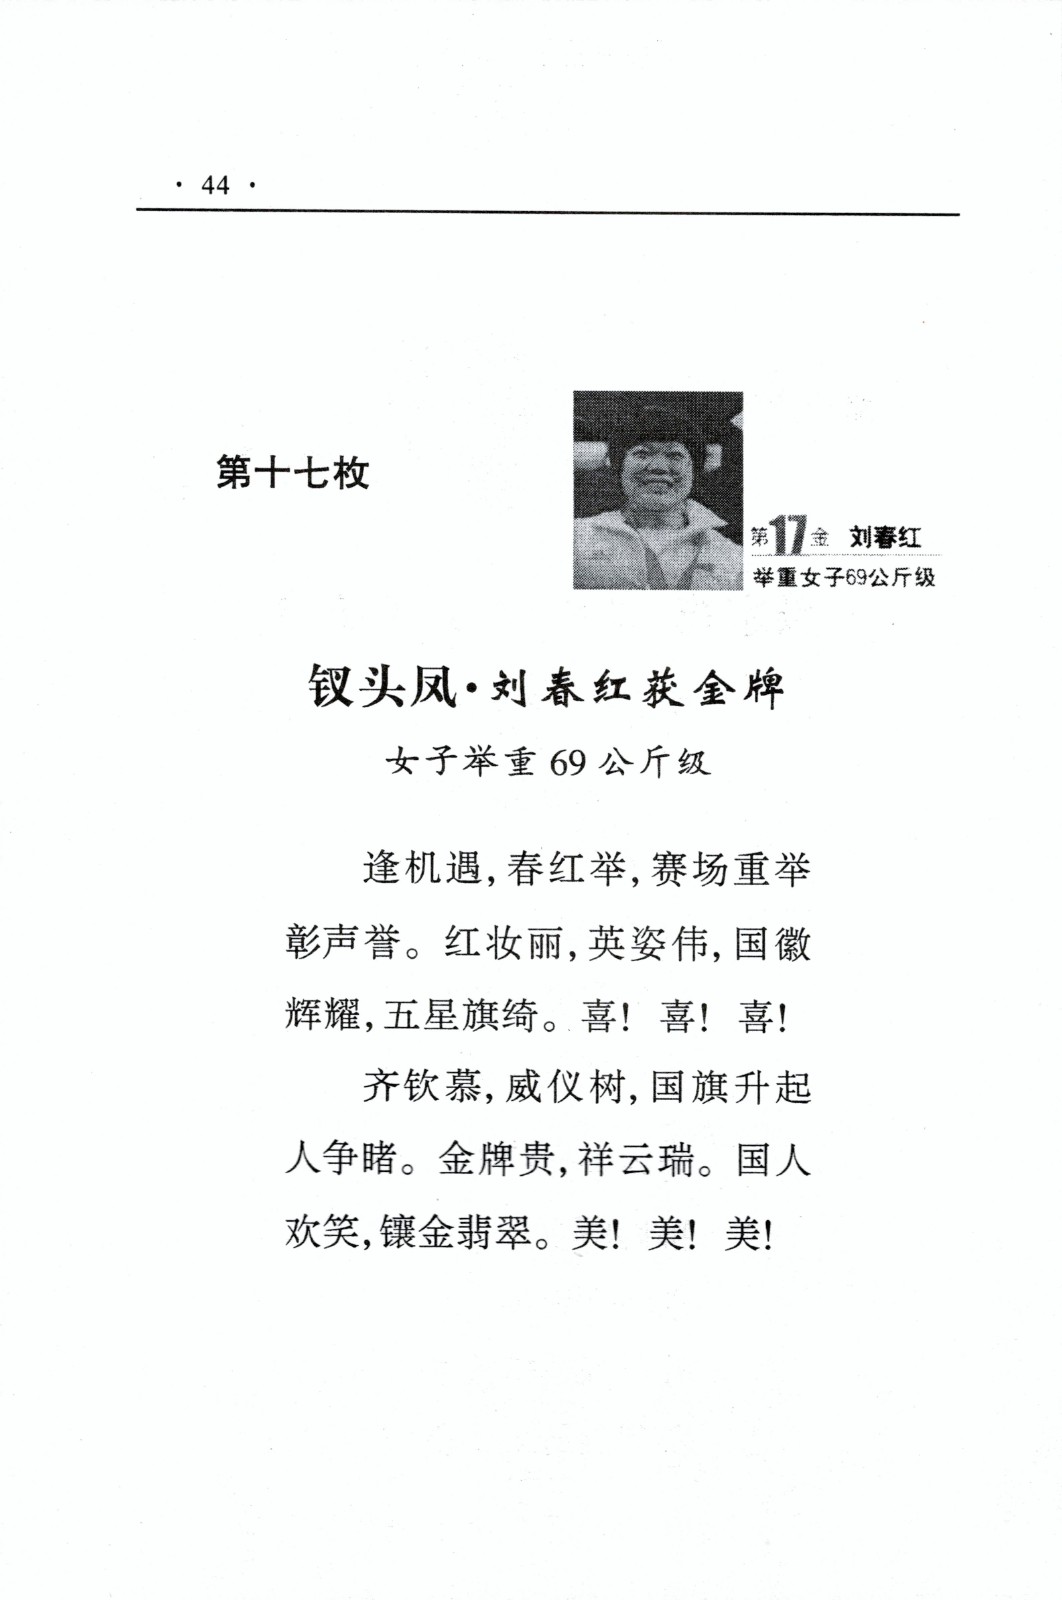 · 44 ·
第十七枚
第17金 刘春红
举重女子69公斤级
钗头凤·刘春红获金牌
女子举重 69 公斤级
逢机遇,春红举,赛场重举
彰声誉。红妆丽,英姿伟,国徽
辉耀,五星旗绮。喜! 喜! 喜!
齐钦慕,威仪树,国旗升起
人争睹。金牌贵,祥云瑞。国人
欢笑,镶金翡翠。美! 美! 美!